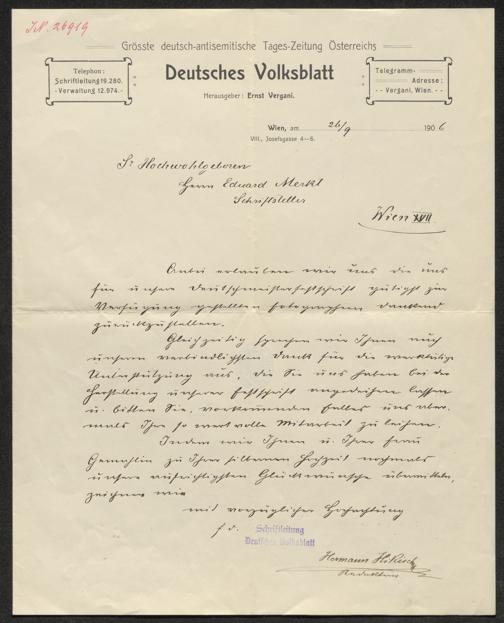 I.N. 26919
Grösste deutsch-antisemitische Tages-Zeitung Österreichs
Telephon:
Schriftleitung 19.280.
Verwaltung 12.974.
Deutsches Volksblatt
Herausgeber: Ernst Vergani.
Telegramm-
Adresse:
Vergani, Wien.
Wien, am 26/9 1906
VIII., Josefsgasse 4–6.
Sr Hochwohlgeboren
Herrn Eduard Merkl
Schriftsteller
Wien XVII
Anbei erlauben wir uns die uns
für unsere Deutschmeisterfestschrift gütigst zur
Verfügung gestellten Fotografien dankend
zurückzustellen.
Gleichzeitig sprechen wir Ihnen auch
unseren verbindlichsten Dank für die werktätige
Unterstützung aus, die Sie uns haben bei der
Herstellung unserer Festschrift angedeihen lassen
u. bitten Sie, vorkommenden Falles uns aber-
mals Ihre so wertvolle Mitarbeit zu leihen.
Indem wir Ihnen u. Ihrer Frau
Gemahlin zu Ihrer silbernen Hochzeit nochmals
unsere aufrichtigsten Glückwünsche übermitteln,
zeichnen wir
mit vorzüglicher Hochachtung
f. d. Schriftleitung
Deutsches Volksblatt
Hermann
Redakteur